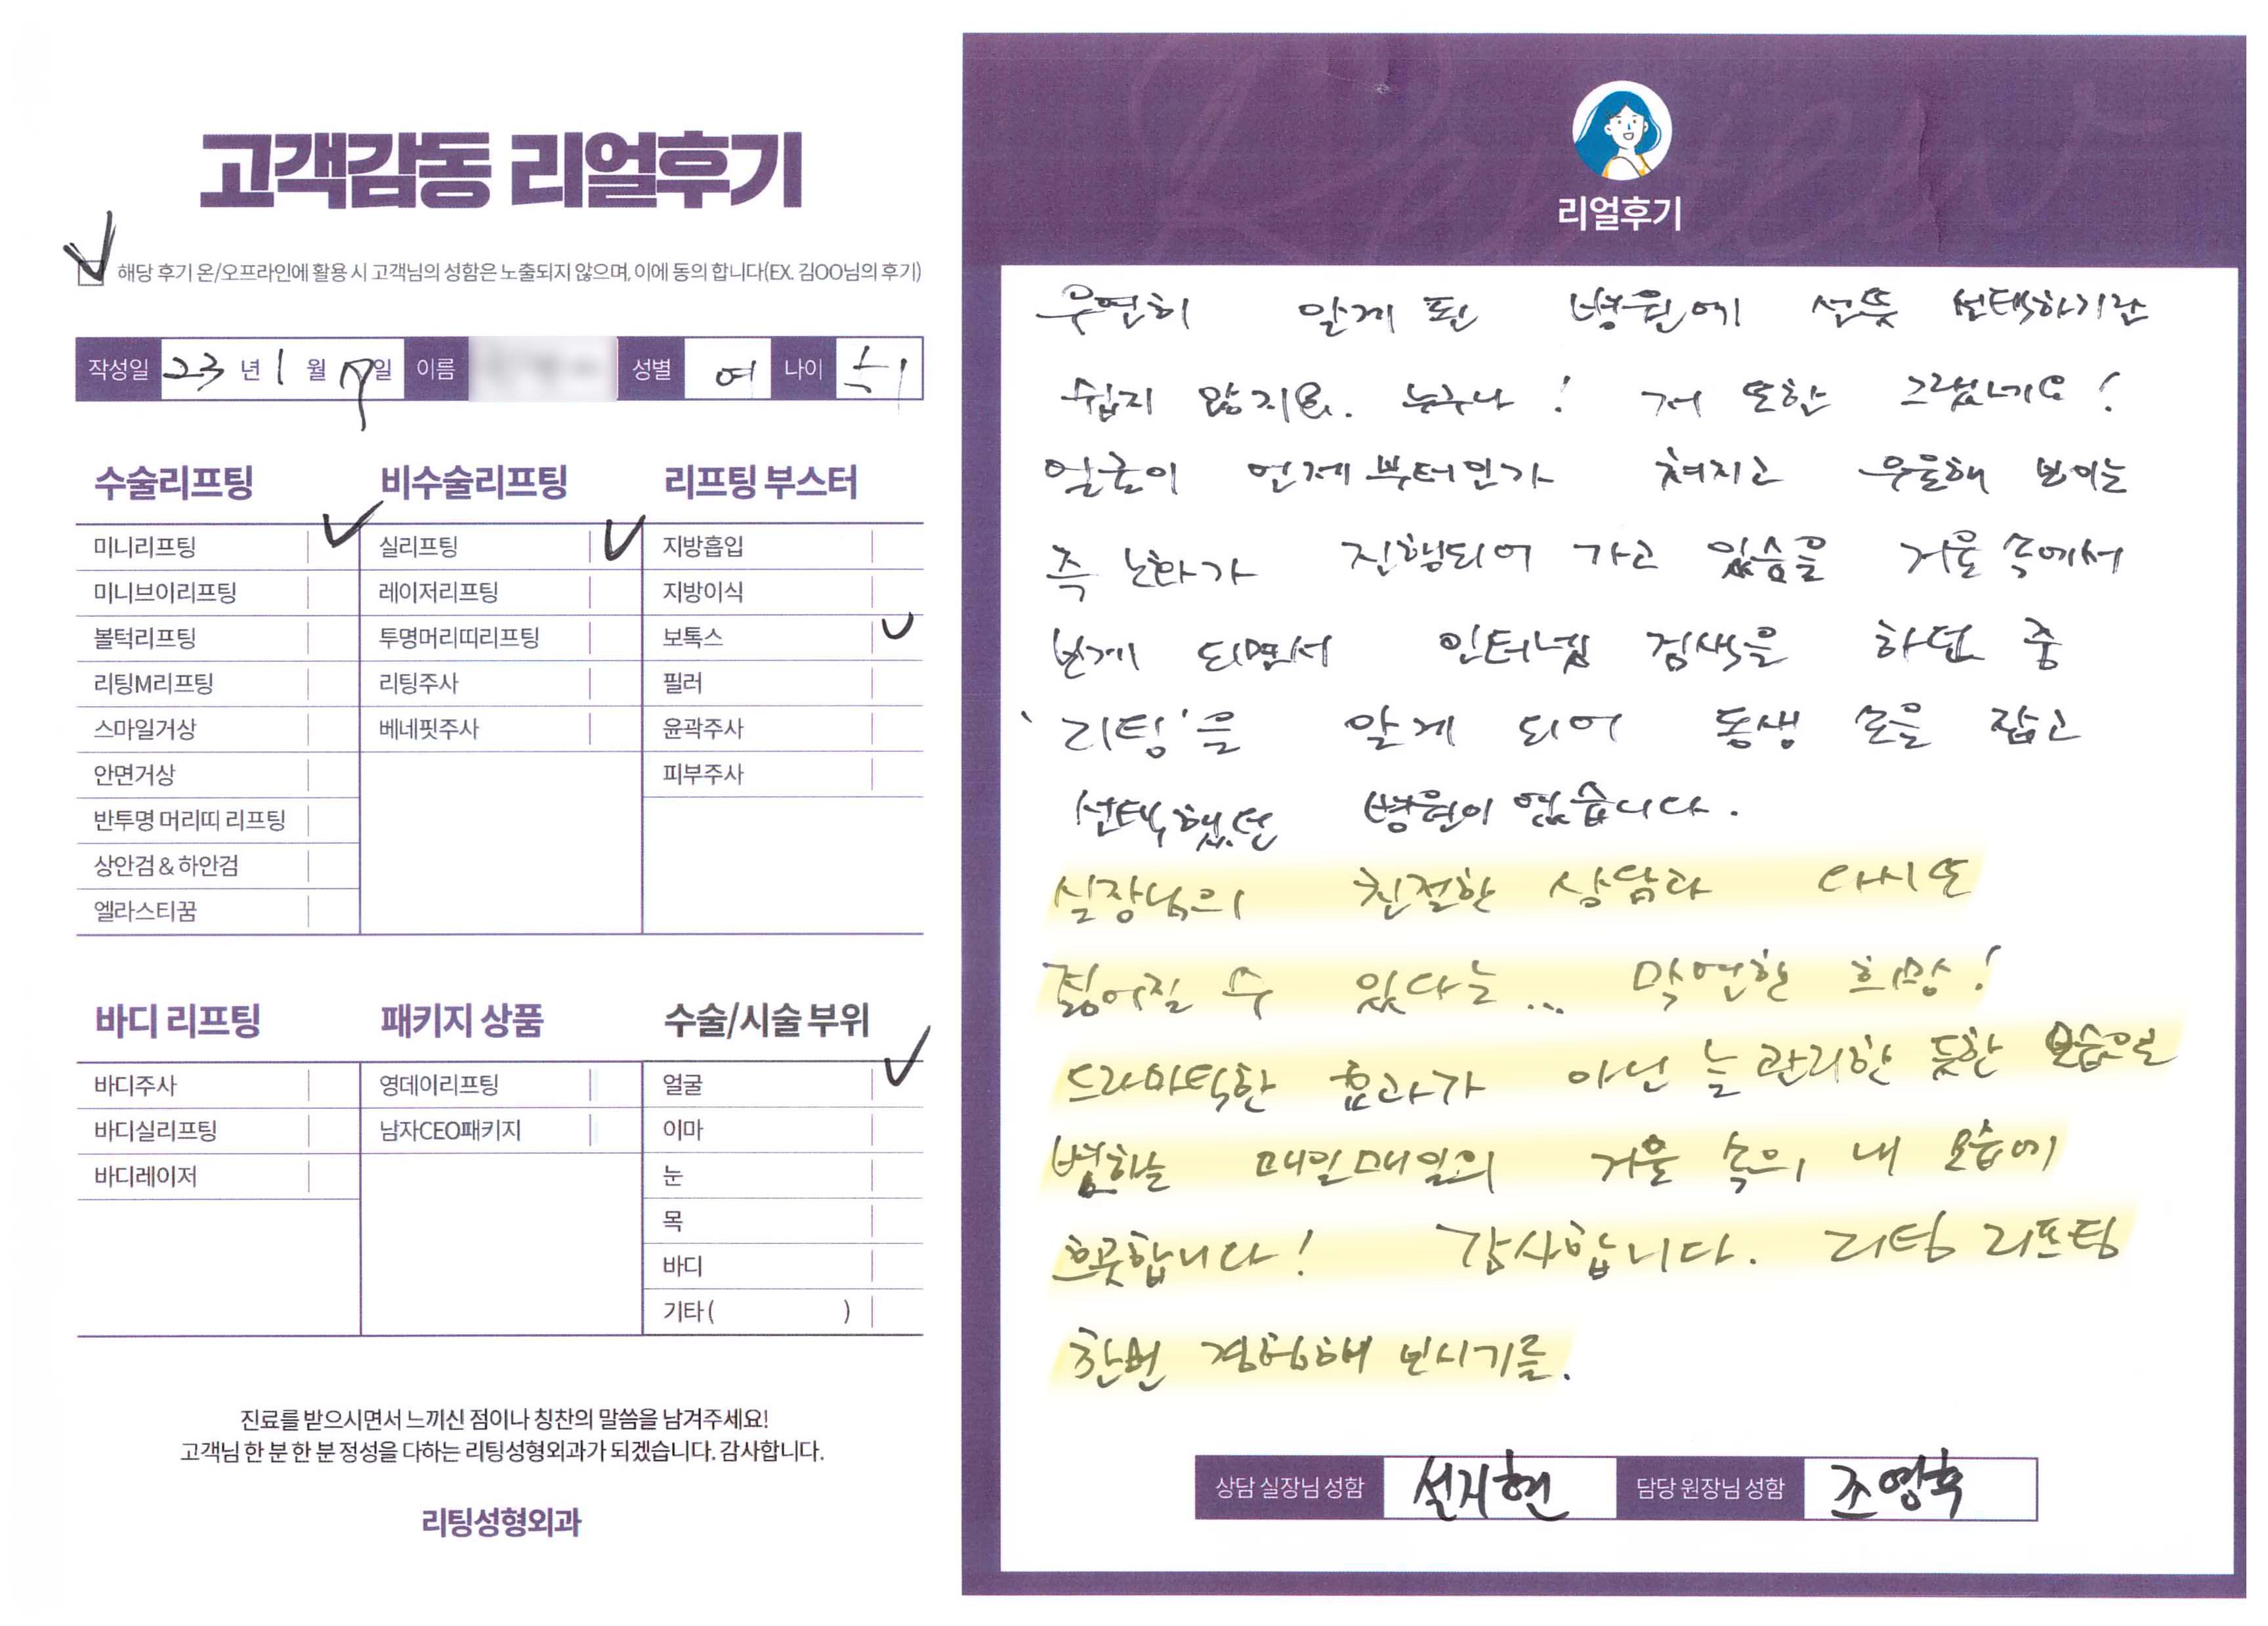 고객감동 리얼후기
해당 후기 온/오프라인에 활용 시 고객님의 성함은 노출되지 않으며, 이에 동의 합니다(EX. 김OO님의 후기)
작성일 23 년 1 월 일 이름 성별 여 나이
수술리프팅
미니리프팅
미니브이리프팅
볼턱리프팅
리팅M리프팅
스마일거상
안면거상
반투명 머리띠 리프팅
상안검 & 하안검
엘라스티꿈
비수술리프팅
실리프팅
레이저리프팅
투명머리띠리프팅
리팅주사
베네핏주사
리프팅 부스터
지방흡입
지방이식
보톡스
필러
윤곽주사
피부주사
바디 리프팅
바디주사
바디실리프팅
바디레이저
패키지 상품
영데이리프팅
남자CEO패키지
수술/시술 부위
얼굴
이마
눈
목
바디
기타 ( )
진료를 받으시면서 느끼신 점이나 칭찬의 말씀을 남겨주세요!
고객님 한 분 한 분 정성을 다하는 리팅성형외과가 되겠습니다. 감사합니다.
리팅성형외과
리얼후기
우연히 알게 된 병원에 선뜻 선택하기란
쉽지 않지요. 누구나! 저 또한 그랬니까요!
얼굴이 언제부터인가 쳐지고 우울해 보이는
즉 노화가 진행되어 가고 있슴을 거울 속에서
보게 되면서 인터넷 검색을 하던 중
'리팅'을 알게 되어 동생 손을 잡고
선택했던 병원이 였습니다.
실장님의 친절한 상담과 다시 또
젊어질 수 있다는... 막연한 희망!
드라마틱한 효과가 아닌 늘 관리한 듯한 모습으로
변하는 매일매일의 거울 속의 내 모습에
흐뭇합니다! 감사합니다. 리팅 리프팅
한번 경험해 보시기를.
상담 실장님 성함 설지현 담당 원장님 성함 조영훈